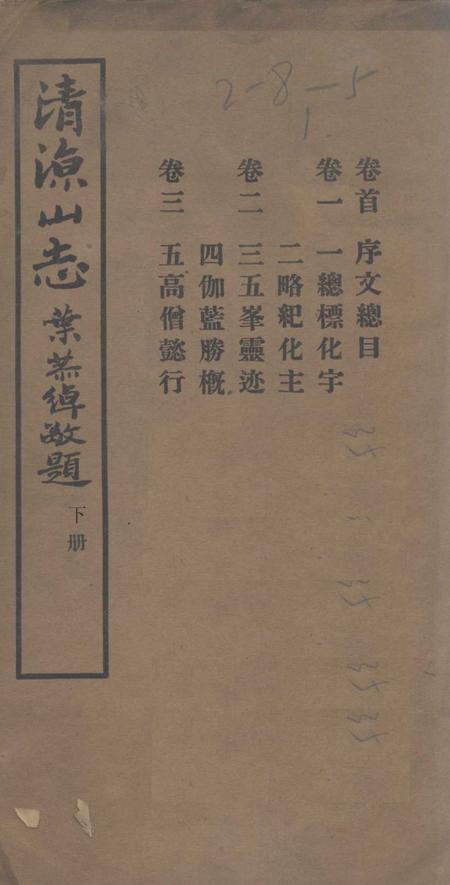 2-8-5
1.
卷首 序文總目
卷一 一總標化宇
二略紀化主
卷二 三五峯靈迹
四伽藍勝概
卷三 五高僧懿行
清涼山志
葉恭綽敬題
下册